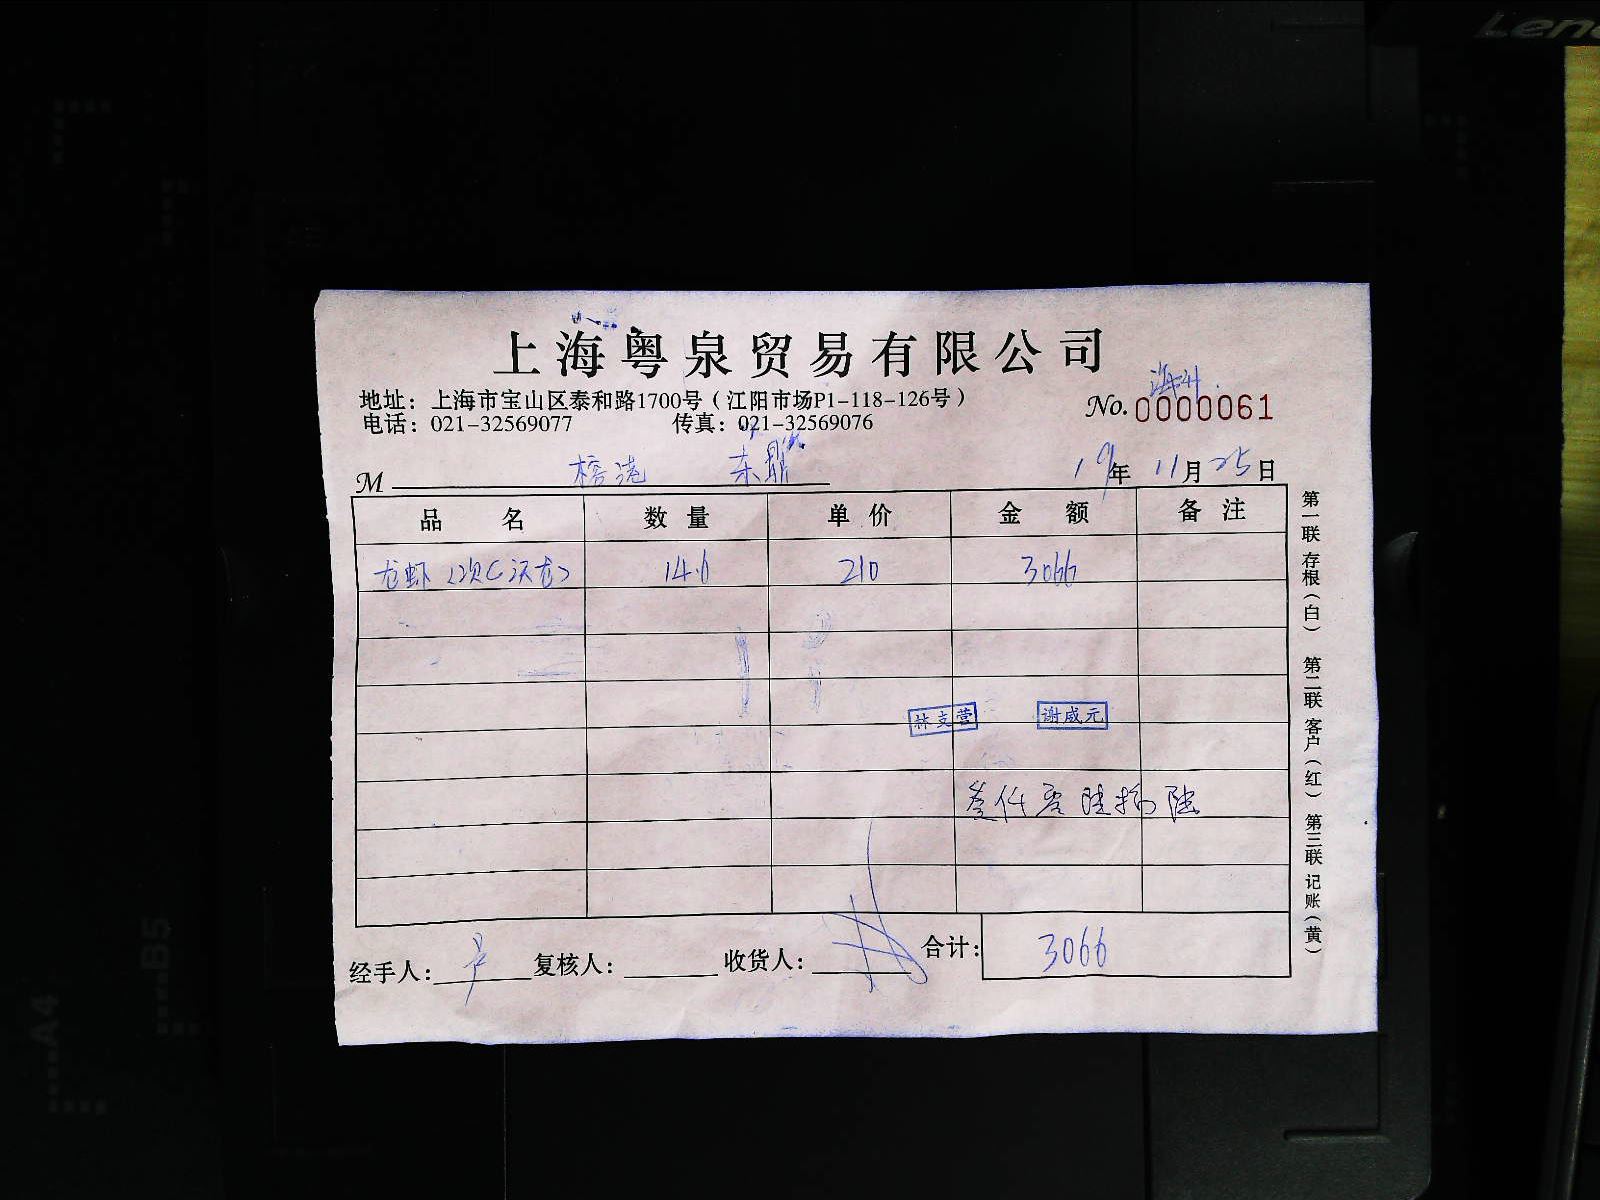 Leno
上海粤泉贸易有限公司
地址：上海市宝山区泰和路1700号（江阳市场P1-118-126号）
No. 0000061
电话：021-32569077 传真：021-32569076
M 东鼎
19年 11月 25日
品 名 数 量 单 价 金 额 备 注
龙虾 14.6 210 3066
林支营 谢威元
叁仟零陆拾陆
经手人： 复核人： 收货人： 合计： 3066
第一联 存根（白） 第二联 客户（红） 第三联 记账（黄）
B5
A4